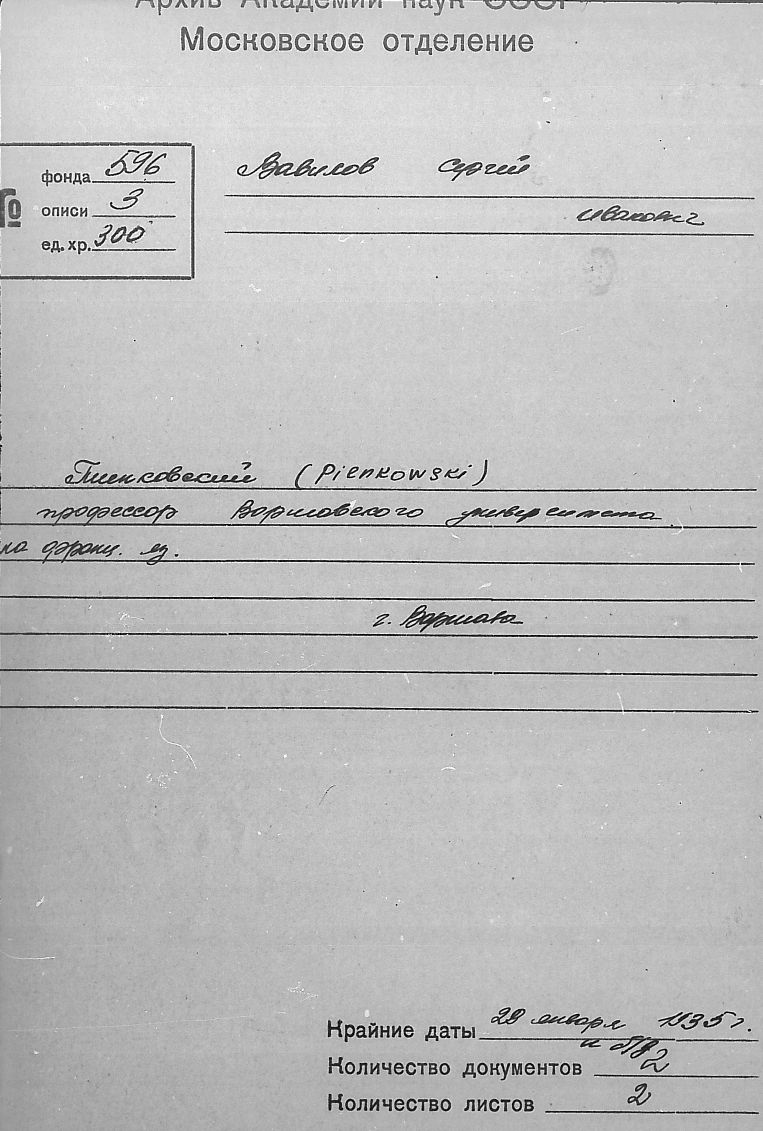 Архив Академии наук СССР
Московское отделение
№
фонда 596
описи 3
ед. хр. 300
Вавилов Сергей
Иванович
Пиенковский (Pienkowski)
профессор Варшавского университета
на франц. яз.
г. Варшава
Крайние даты 29 января 1935 г.
и б/д
Количество документов 2
Количество листов 2